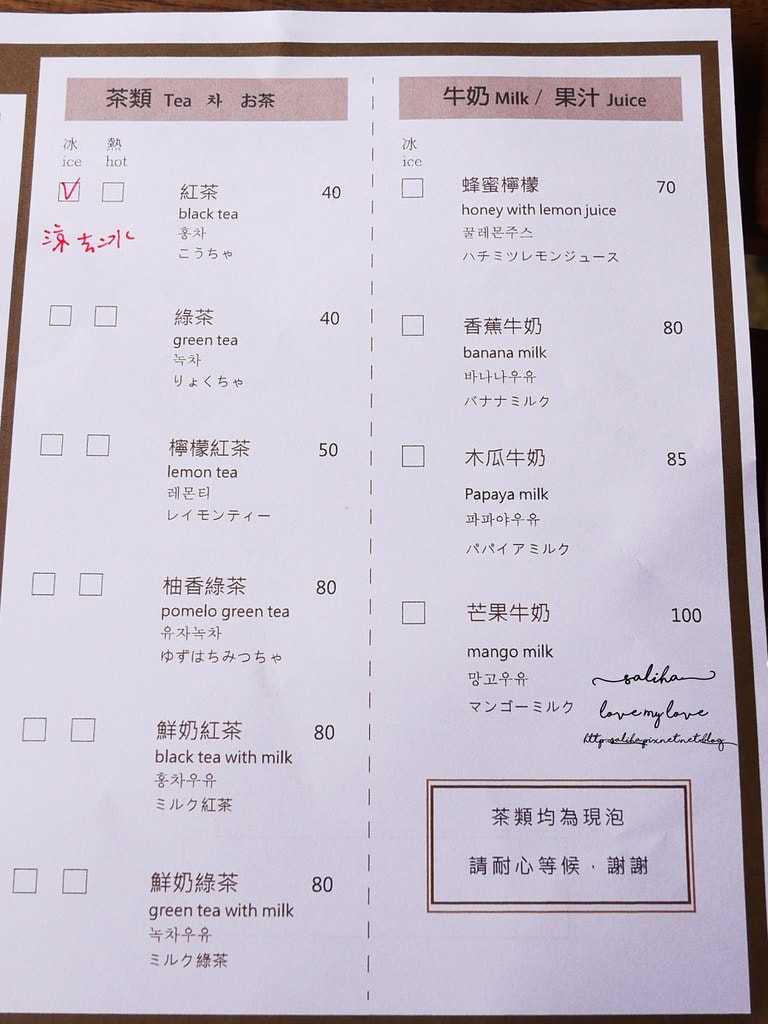 茶類 Tea 차 お茶
冰 熱
ice hot
V
涼 去冰
紅茶 40
black tea
홍차
こうちゃ
綠茶 40
green tea
녹차
りょくちゃ
檸檬紅茶 50
lemon tea
레몬티
レイモンティー
柚香綠茶 80
pomelo green tea
유자녹차
ゆずはちみつちゃ
鮮奶紅茶 80
black tea with milk
홍차우유
ミルク紅茶
鮮奶綠茶 80
green tea with milk
녹차우유
ミルク綠茶
牛奶 Milk / 果汁 Juice
冰
ice
蜂蜜檸檬 70
honey with lemon juice
꿀레몬주스
ハチミツレモンジュース
香蕉牛奶 80
banana milk
바나나우유
バナナミルク
木瓜牛奶 85
Papaya milk
파파야우유
パパイアミルク
芒果牛奶 100
mango milk
망고우유
マンゴーミルク
saliha
love my love
http:saliha.pixnet.net/blog
茶類均為現泡
請耐心等候，謝謝